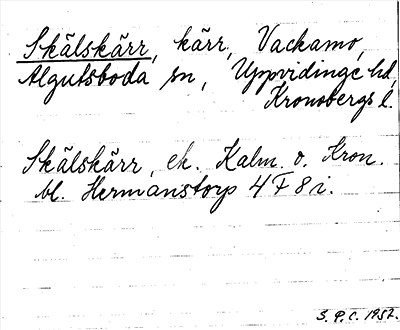 Skälskärr, kärr, Vackamo,
Algutsboda sn, Uppvidinge hd,
Kronobergs l.
Skälskärr, ek. Kalm. o. Kron.
bl. Hermanstorp 4 F 8 i.
S. P. C. 1952.